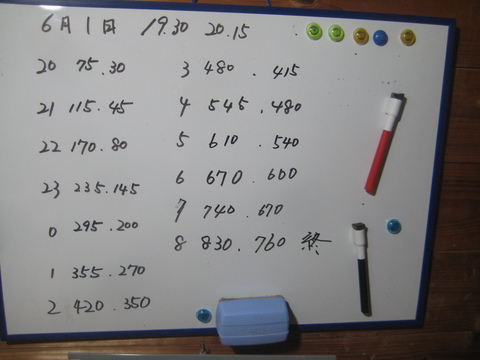 6月1日 19.30 20.15
20 75.30
21 115.45
22 170.80
23 235.145
0 295.200
1 355.270
2 420.350
3 480.415
4 545.480
5 610.540
6 670.600
7 740.670
8 830.760 終